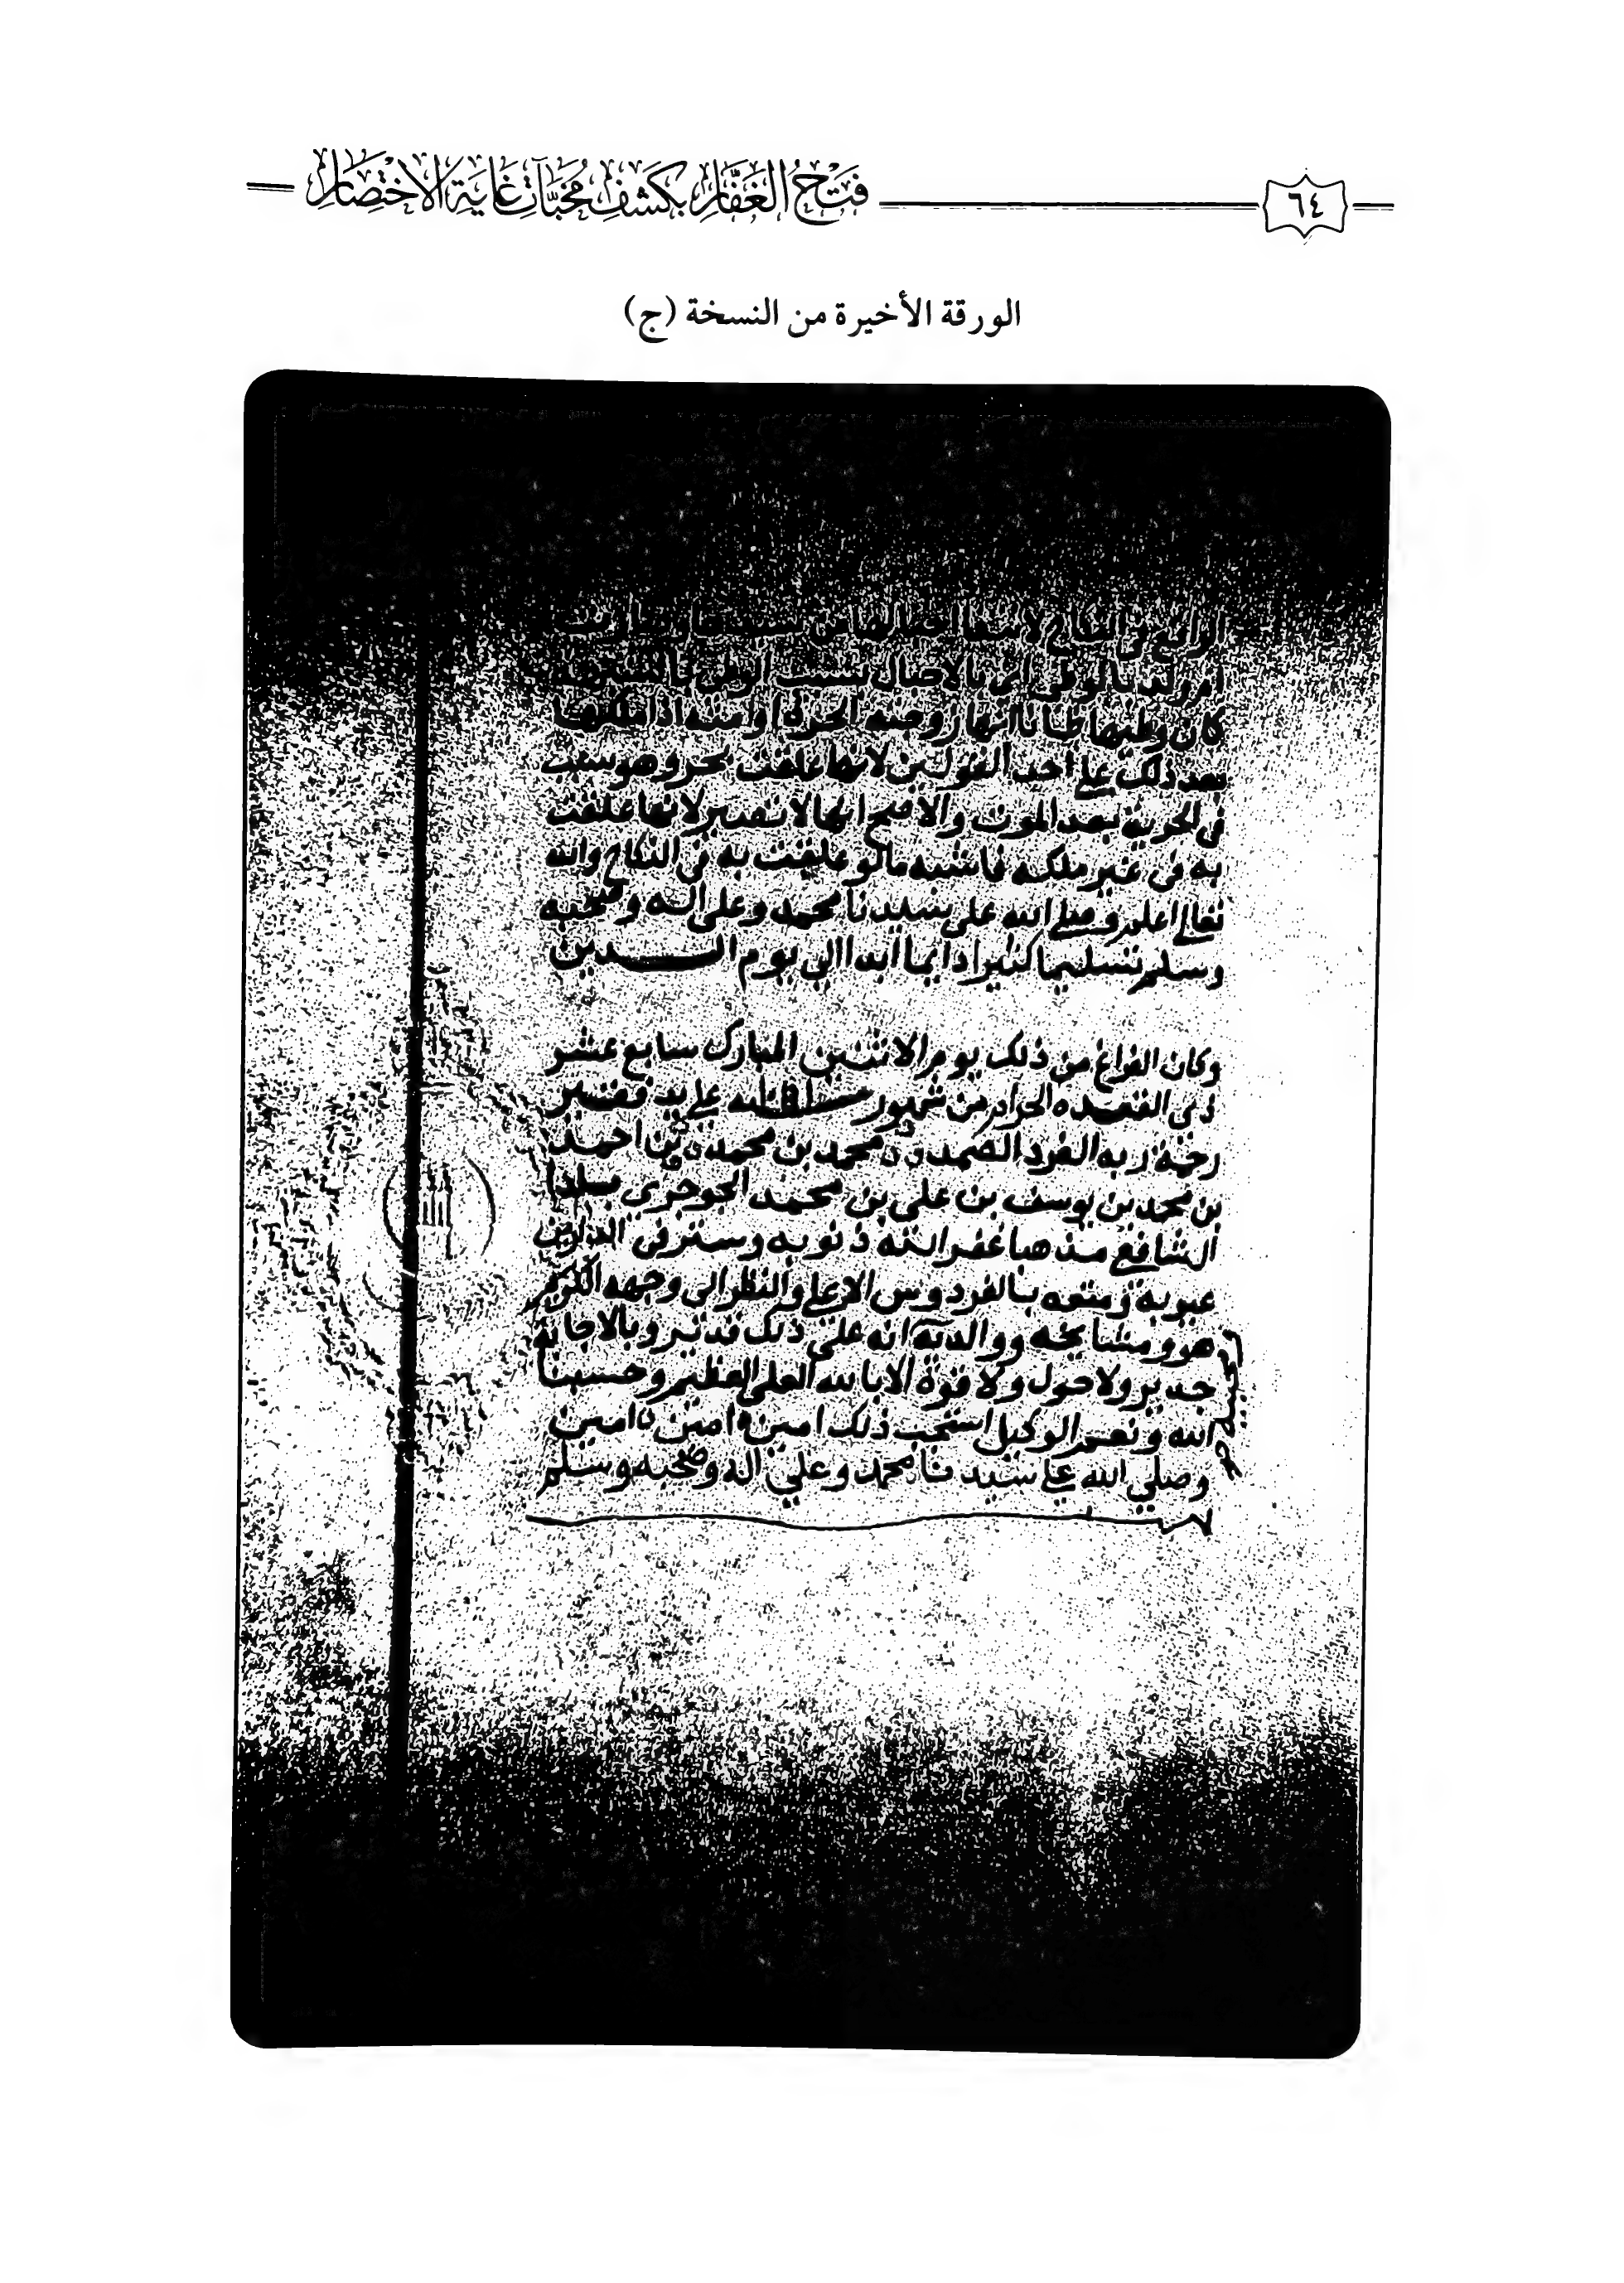 فَتْحُ الغَفَّارِ بِكَشْفِ مُخَبَّآتِ غَايَةِ الاخْتِصَارِ
٦٤
الورقة الأخيرة من النسخة (ج)
الواقع في النكاح لا
ام ولد بالوطئ اي بالاحبال بسبب الوطئ بالشبهة
كان وطئها ظانا انها زوجته الحرة او امته اذا ملكها
بعد ذلك علي احد القولين لانها علقت بحر وهو سبب
في الحرية بعد الموت والاصح انها لا تصير لانها علقت
به في غير ملكه فاشبه ما لو علقت به في النكاح والله
تعالي اعلم وصلي الله علي سيدنا محمد وعلي اله وصحبه
وسلم تسليما كثيرا دايما ابدا الي يوم الدين
وكان الفراغ من ذلك يوم الاثنين المبارك سابع عشر
ذي القعده الحرام من شهور سنة علي يد فقير
رحمة ربه الفرد الصمد محمد بن محمد بن احمد
بن محمد بن يوسف بن علي بن محمد الجوجري بلدا
الشافعي مذهبا غفر الله ذنوبه وستر في الدارين
عيوبه ومتعه بالفردوس الاعلي والنظر الي وجهه الكريم
هو ومشايخه ووالديه انه علي ذلك قدير وبالاجابة
جدير ولا حول ولا قوة الا بالله العلي العظيم وحسبنا
الله ونعم الوكيل استجب ذلك امين امين امين
وصلي الله علي سيدنا محمد وعلي اله وصحبه وسلم